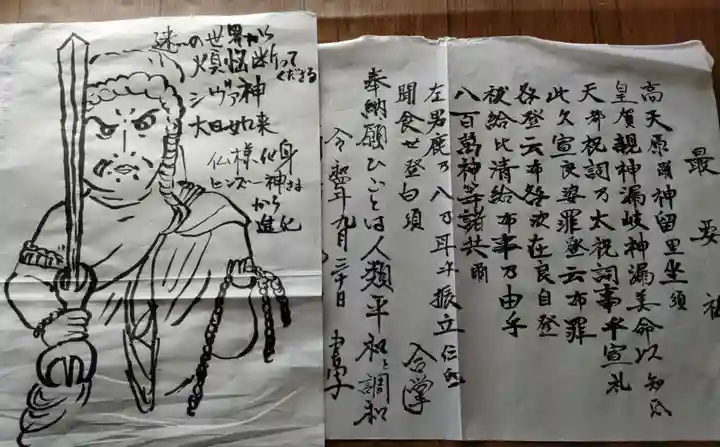 迷への世界から
煩悩断って
くださる
シヴァ神
大日如来
仏様化身
ヒンズー神さま
から
進化
最要祓
高天原爾神留里坐須
皇賀親神漏岐神漏美命以知氐
天津祝詞乃太祝詞事乎宣礼
此久宣良婆罪登云布罪
咎登云布咎波在良自登
祓給比清給布事乃由乎
八百萬神等諸共爾
左男鹿乃八乃耳乎振立仁氐
聞食世登白須 合掌
奉納願ひごとは人類平和と調和
令和 年九月二十日